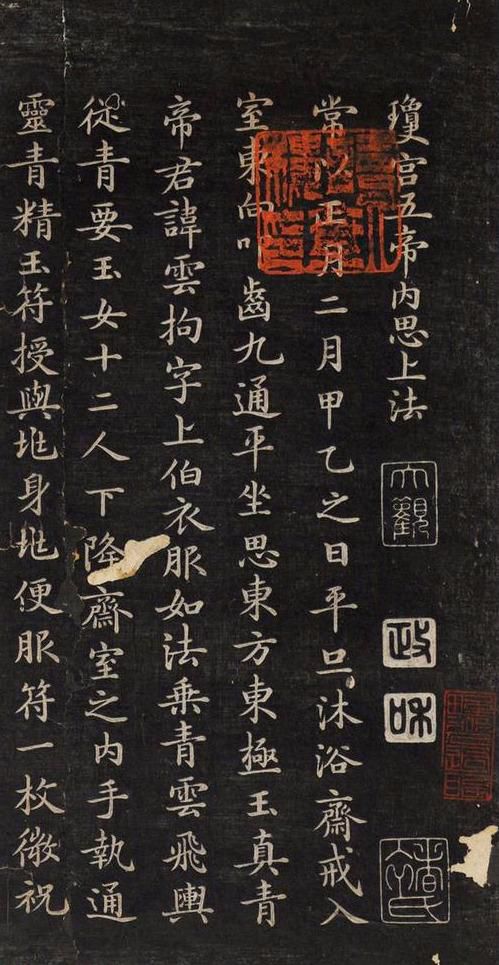 瓊宮五帝内思上法
常以正月二月甲乙之日平旦沐浴齋戒入
室東向叩齒九通平坐思東方東極玉真青
帝君諱雲拘字上伯衣服如法乘青雲飛輿
從青要玉女十二人下降齋室之内手執通
靈青精玉符授與地身地便服符一枚微祝
大觀
政和